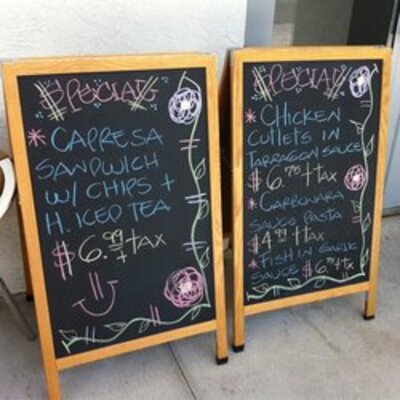 SPECIALS
* CAPRESA
SANDWICH
W/ CHIPS +
H. ICED TEA
$6.99 + TAX
SPECIALS
* CHICKEN
CUTLETS IN
TARRAGON SAUCE
$6.75 + TAX
* CARBONARA
SAUCE PASTA
$4.99 + TAX
* FISH IN GARLIC
SAUCE $6.75 + TX